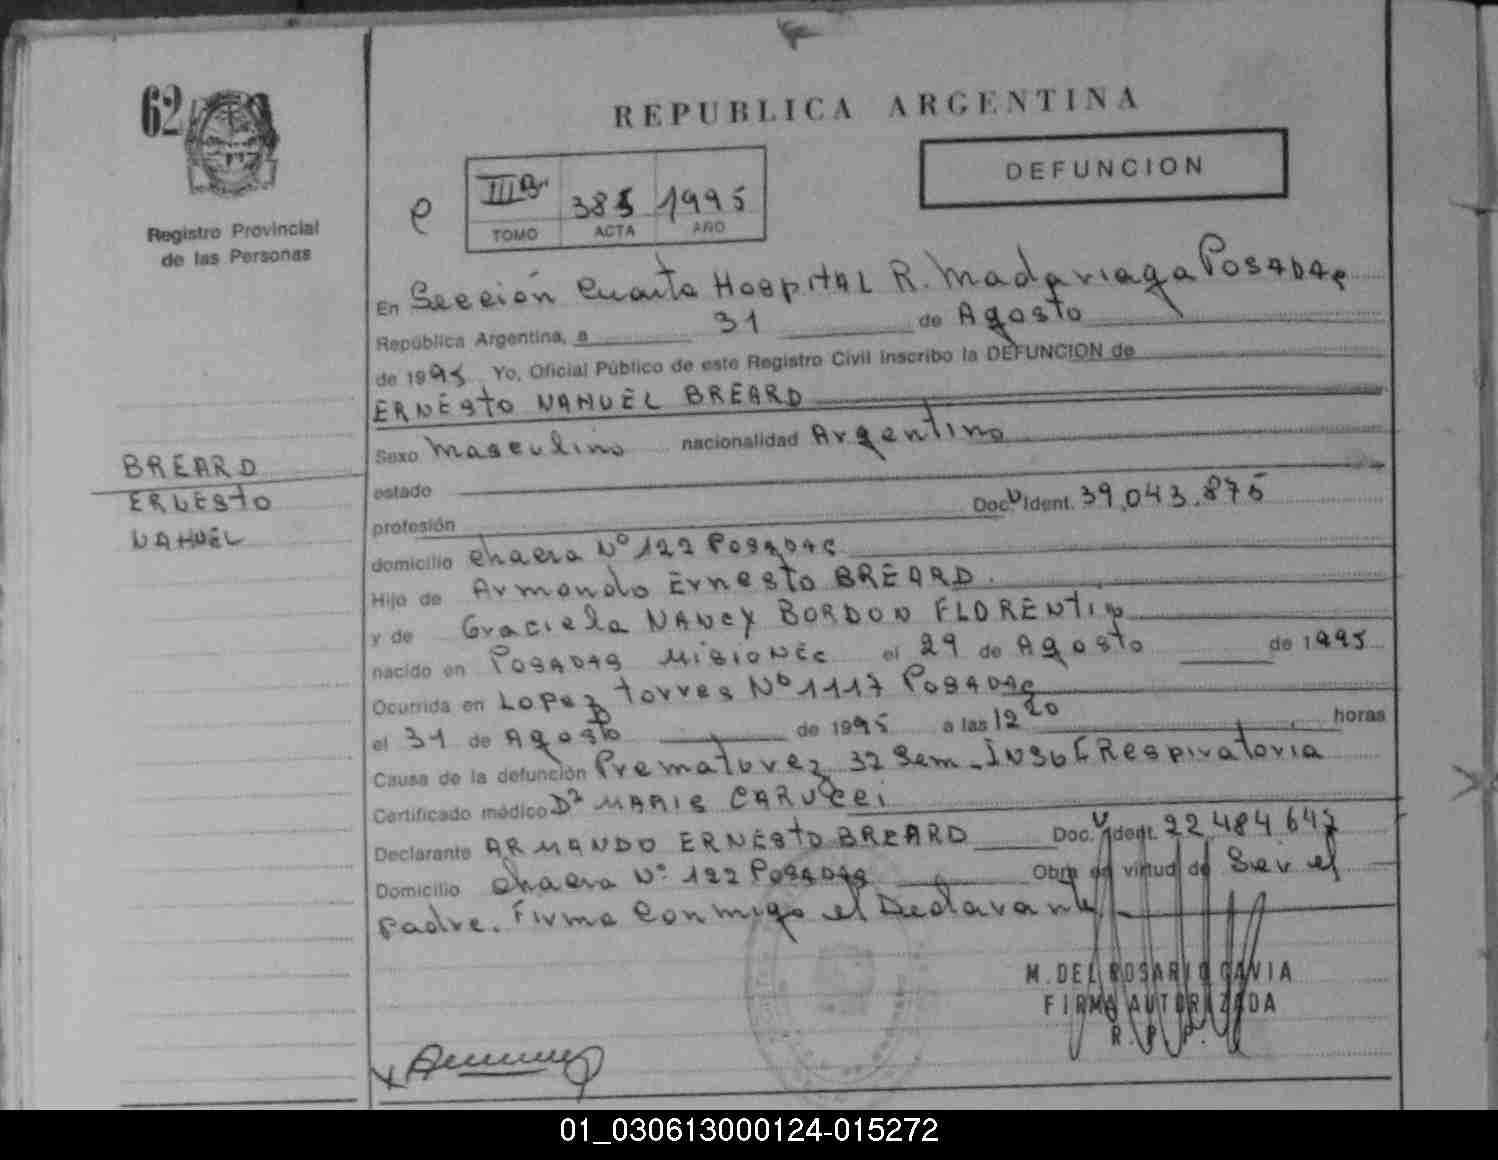 62
Registro Provincial
de las Personas
REPUBLICA ARGENTINA
DEFUNCION
e
III B 385 1995
TOMO ACTA AÑO
En Sección Cuarta HOSPITAL R. Madariaga POSADAS
República Argentina, a 31 de Agosto
de 1995 Yo, Oficial Público de este Registro Civil inscribo la DEFUNCION de
ERNESTO NAHUEL BREARD
Sexo Masculino nacionalidad Argentino
BREARD
ERNESTO
NAHUEL
estado
profesión Doc. U Ident. 39.043.875
domicilio chacra Nº 122 POSADAS
Hijo de Armando Ernesto BREARD.
y de Graciela NANCY BORDON FLORENTIN
nacido en POSADAS MISIONES el 29 de Agosto de 1995
Ocurrida en LOPEZ torres Nº 1117 POSADAS
el 31 de Agosto de 1995 a las 12 20 horas
Causa de la defunción Prematurez 32 Sem - INSUF Respiratoria
Certificado médico MARIS CARUCCI
Declarante ARMANDO ERNESTO BREARD Doc. U Ident. 22.484.647
Domicilio chacra Nº 122 POSADAS Obra en virtud de Ser el
Padre. Firma Conmigo el Declarante
M. DEL ROSARIO GAVIA
FIRMA AUTORIZADA
R. P. P.
01_030613000124-015272